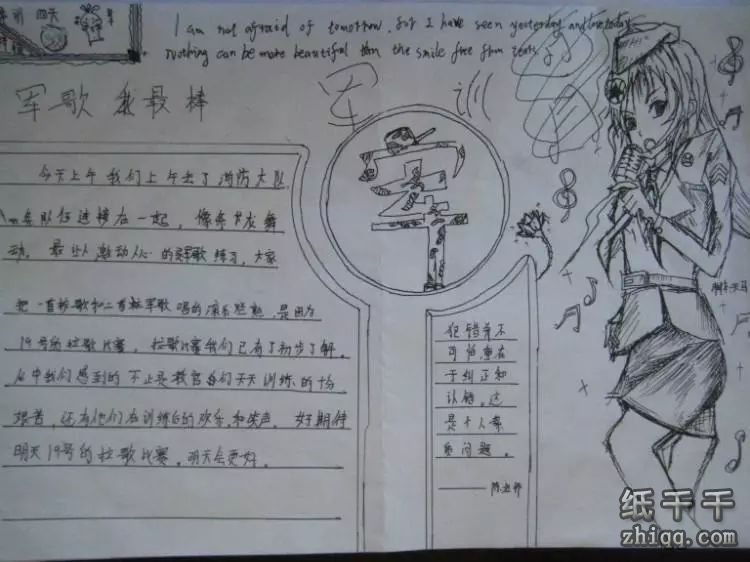 军训 四天
I am not afraid of tomorrow, for I have seen yesterday and love today
Nothing can be more beautiful than the smile free from tears
军歌 我最棒
军
军
今天上午我们上午去了消防大队
队伍连接在一起，像条长龙舞
动。最让人激动人心的军歌练习，大家
把一首校歌和二首军歌唱的滚瓜烂熟，是因为
19号的拉歌比赛，拉歌比赛我们已有了初步了解，
在中我们感到的不止是教官每们天天训练的十分
艰苦，还有他们在训练后的欢乐和笑声。好期待
明天19号的拉歌比赛，明天会更好。
犯错并不
可怕，重在
于纠正和
认错，这
是个人素
质问题。
纸千千
zhiqq.com